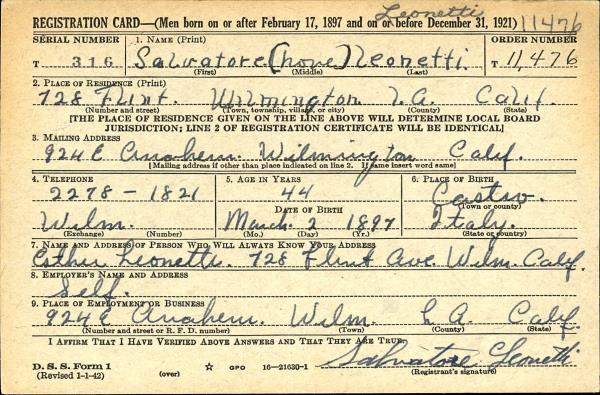 Leonetti 11476
REGISTRATION CARD—(Men born on or after February 17, 1897 and on or before December 31, 1921)
SERIAL NUMBER 1. NAME (Print) ORDER NUMBER
T 316 Salvatore (none) Leonetti T 11,476
(First) (Middle) (Last)
2. PLACE OF RESIDENCE (Print)
728 Flint. Wilmington L.A. Calif.
(Number and street) (Town, township, village, or city) (County) (State)
[THE PLACE OF RESIDENCE GIVEN ON THE LINE ABOVE WILL DETERMINE LOCAL BOARD
JURISDICTION; LINE 2 OF REGISTRATION CERTIFICATE WILL BE IDENTICAL]
3. MAILING ADDRESS
924 E Anaheim. Wilmington Calif.
[Mailing address if other than place indicated on line 2. If same insert word same]
4. TELEPHONE 5. AGE IN YEARS 6. PLACE OF BIRTH
2278 - 1821 44 Castro.
DATE OF BIRTH (Town or county)
Wilm. March. 2 1897 Italy.
(Exchange) (Number) (Mo.) (Day) (Yr.) (State or country)
7. NAME AND ADDRESS OF PERSON WHO WILL ALWAYS KNOW YOUR ADDRESS
Esther Leonetti. 728 Flint Ave Wilm. Calif.
8. EMPLOYER'S NAME AND ADDRESS
Self.
9. PLACE OF EMPLOYMENT OR BUSINESS
924 E Anaheim. Wilm. L A. Calif
(Number and street or R. F. D. number) (Town) (County) (State)
I AFFIRM THAT I HAVE VERIFIED ABOVE ANSWERS AND THAT THEY ARE TRUE.
Salvatore Leonetti
D. S. S. Form 1
(Revised 1-1-42) (over) ☆ GPO 16—21630-1 (Registrant's signature)